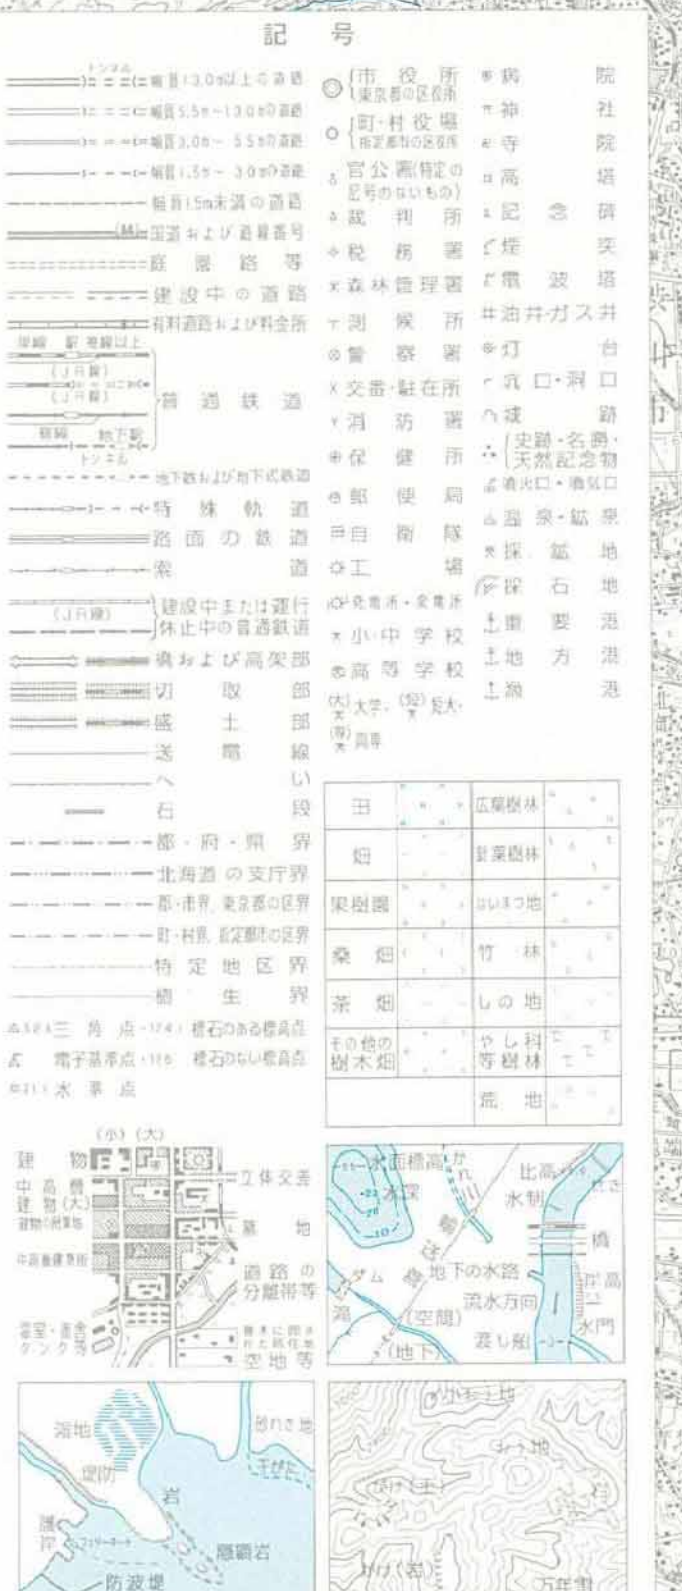 記号
トンネル
幅員13.0m以上の道路
幅員5.5m~13.0mの道路
幅員3.0m~5.5mの道路
幅員1.5m~3.0mの道路
幅員1.5m未満の道路
国道および路線番号
庭園路等
建設中の道路
有料道路および料金所
単線 駅 複線以上
(JR線)
(JR線)
普通鉄道
側線 地下駅
トンネル
地下鉄および地下式鉄道
特殊軌道
路面の鉄道
索道
(JR線)
建設中または運行
休止中の普通鉄道
橋および高架部
切取部
盛土部
送電線
へい
石段
都・府・県界
北海道の支庁界
郡・市界、東京都の区界
町・村界、指定都市の区界
特定地区界
植生界
三角点 標石のある標高点
電子基準点 標石のない標高点
水準点
市役所
東京都の区役所
町・村役場
指定都市の区役所
官公署(特定の
記号のないもの)
裁判所
税務署
森林管理署
測候所
警察署
交番・駐在所
消防署
保健所
郵便局
自衛隊
工場
発電所・変電所
小・中学校
高等学校
(大)大学・(短)短大・
(専)高専
病院
神社
寺院
高塔
記念碑
煙突
電波塔
油井・ガス井
灯台
坑口・洞口
城跡
史跡・名勝・
天然記念物
噴火口・噴気口
温泉・鉱泉
採鉱地
採石地
重要港
地方港
漁港
田 広葉樹林
畑 針葉樹林
果樹園 はいまつ地
桑畑 竹林
茶畑 しの地
その他の樹木畑 やし科等樹林
荒地
(小) (大)
建物
中高層
建物(大)
立体交差
墓地
道路の
分離帯等
タンク等
空地等
水面標高
かれ川
水深
輸送管
比高
せき
水制
橋
ダム
地下の水路
滝
流水方向
(空間)
水門
渡し船
(地下)
湿地
砂れき地
干がた
堤防
岩
護岸
フェリーボート
隠顕岩
防波堤
おう地
がけ(土)
がけ(岩)
万年雪